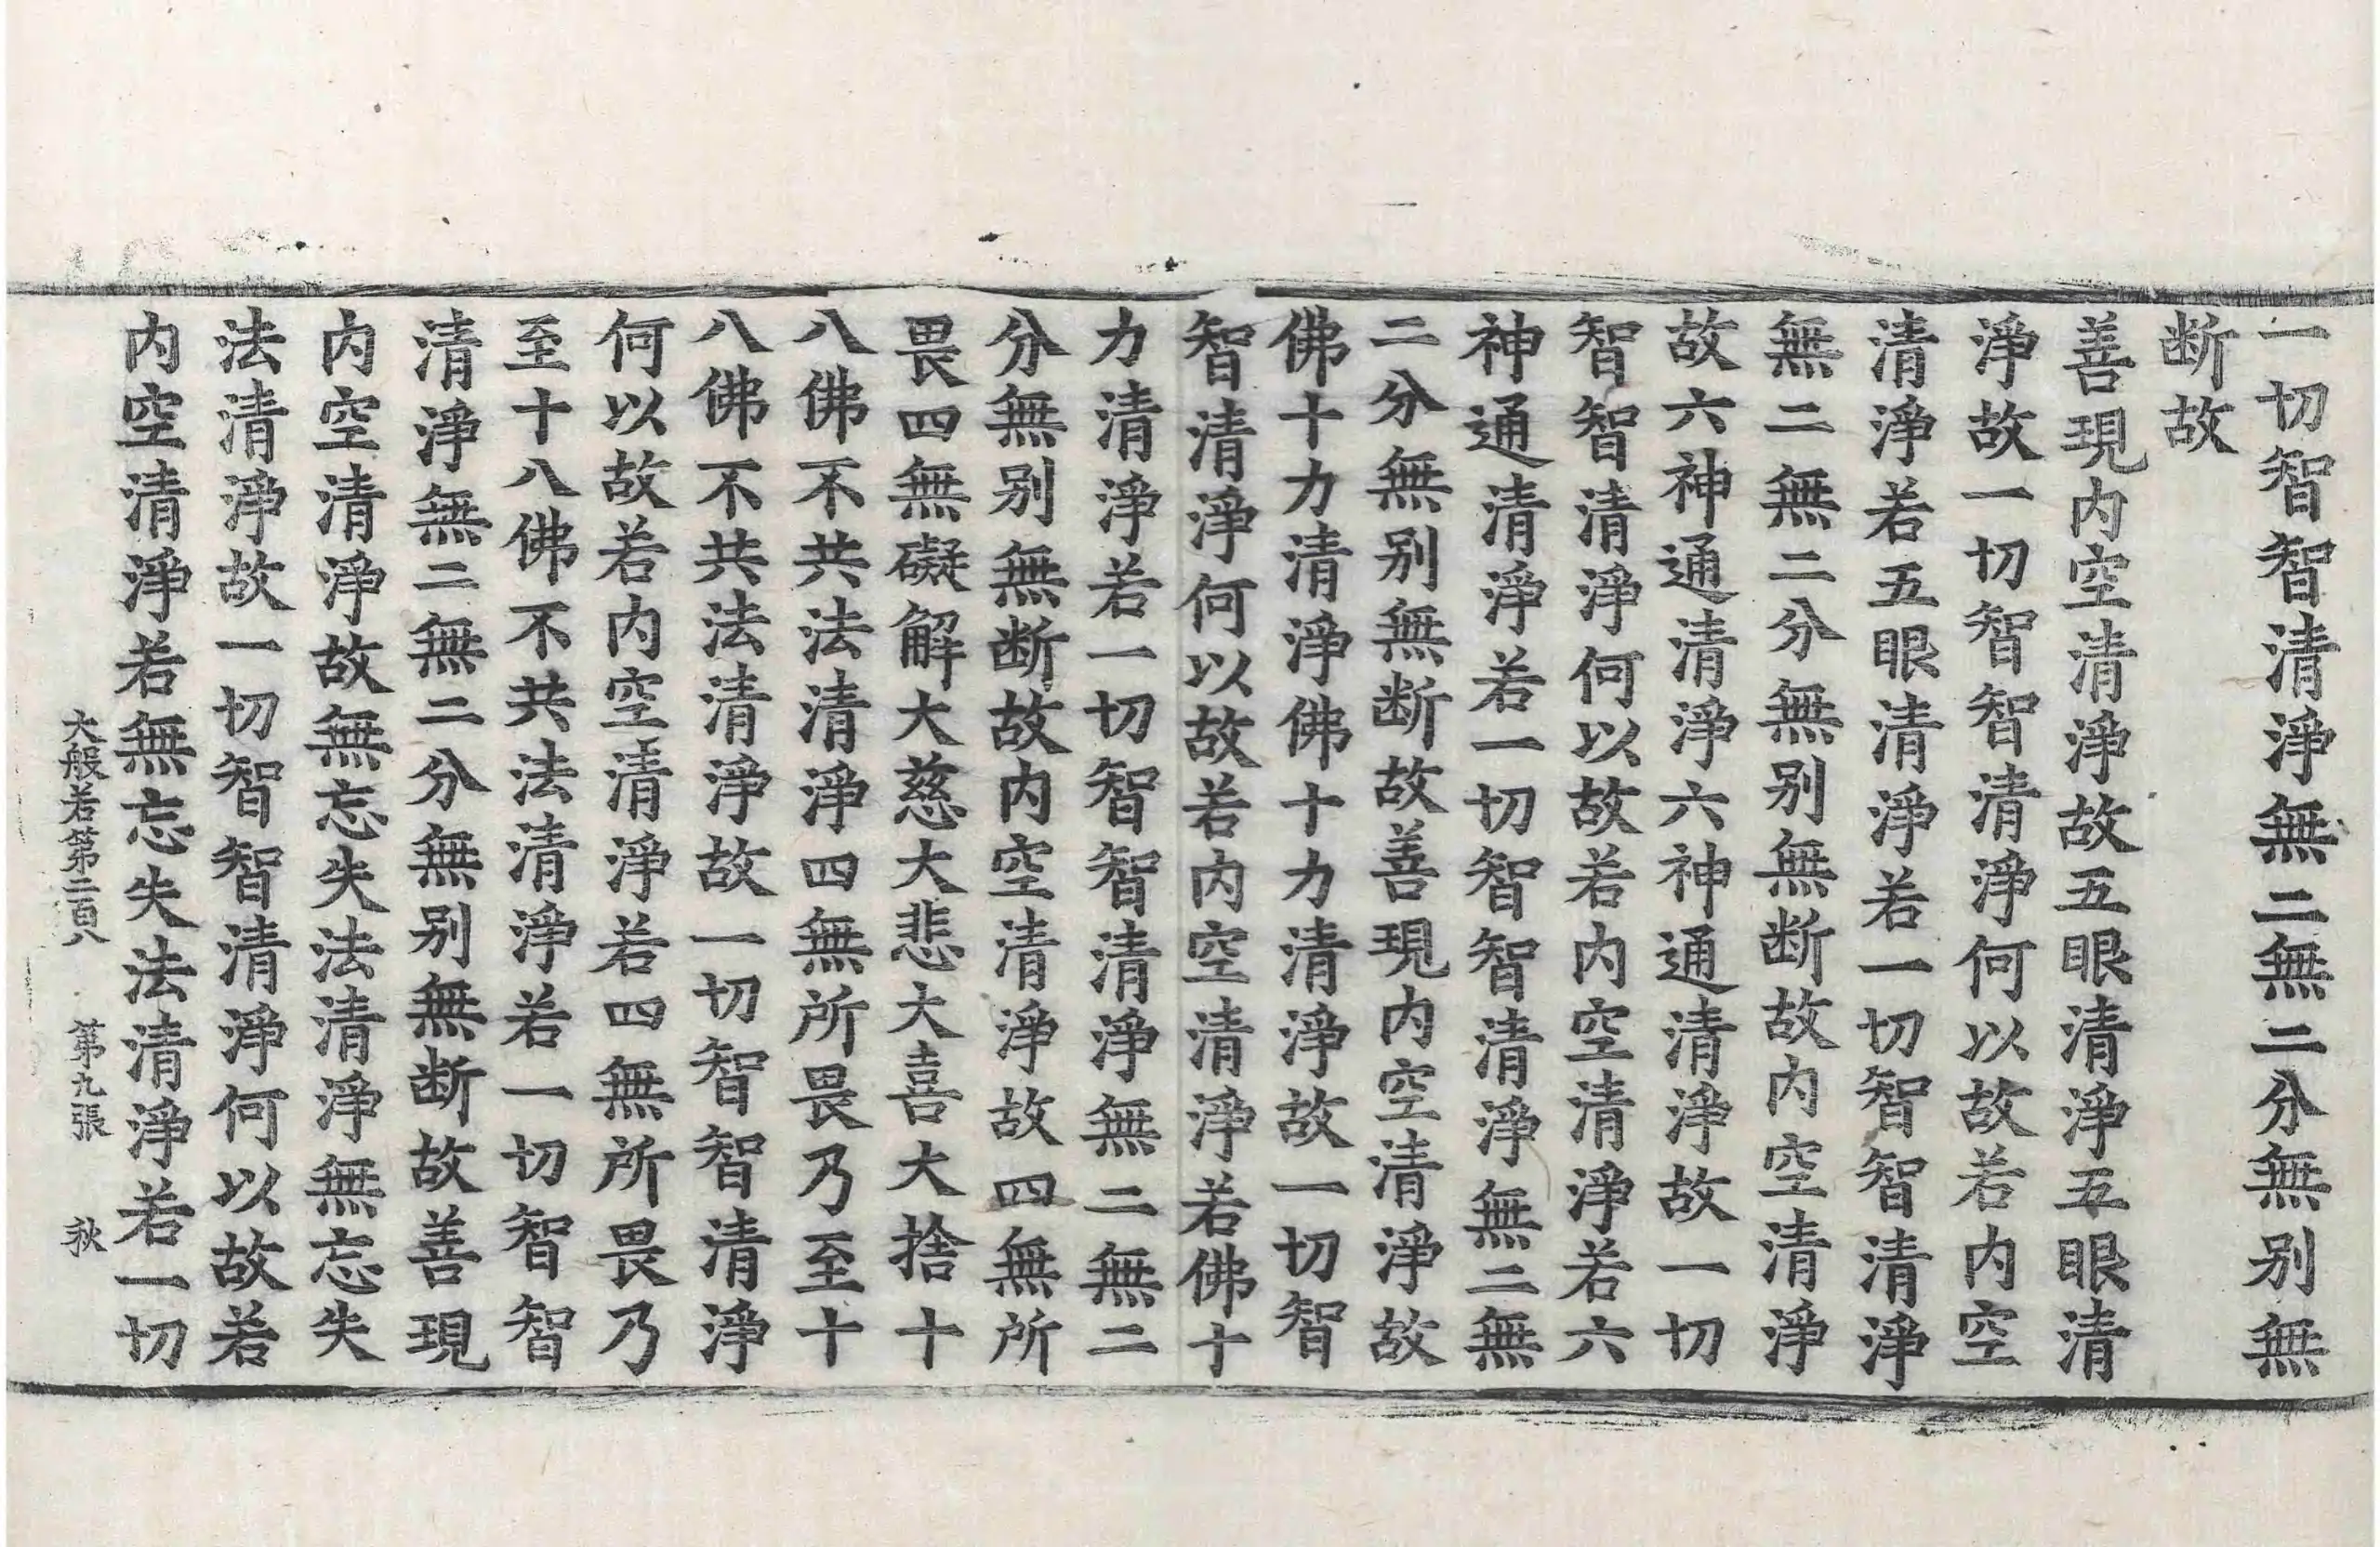 一切智智清淨無二無二分無别無
断故
善現内空清淨故五眼清淨五眼清
淨故一切智智清淨何以故若内空
清淨若五眼清淨若一切智智清淨
無二無二分無别無断故内空清淨
故六神通清淨六神通清淨故一切
智智清淨何以故若内空清淨若六
神通清淨若一切智智清淨無二無
二分無别無断故善現内空清淨故
佛十力清淨佛十力清淨故一切智
智清淨何以故若内空清淨若佛十
力清淨若一切智智清淨無二無二
分無别無断故内空清淨故四無所
畏四無礙解大慈大悲大喜大捨十
八佛不共法清淨四無所畏乃至十
八佛不共法清淨故一切智智清淨
何以故若内空清淨若四無所畏乃
至十八佛不共法清淨若一切智智
清淨無二無二分無别無断故善現
内空清淨故無忘失法清淨無忘失
法清淨故一切智智清淨何以故若
内空清淨若無忘失法清淨若一切
大般若第二百八 第九張 秋